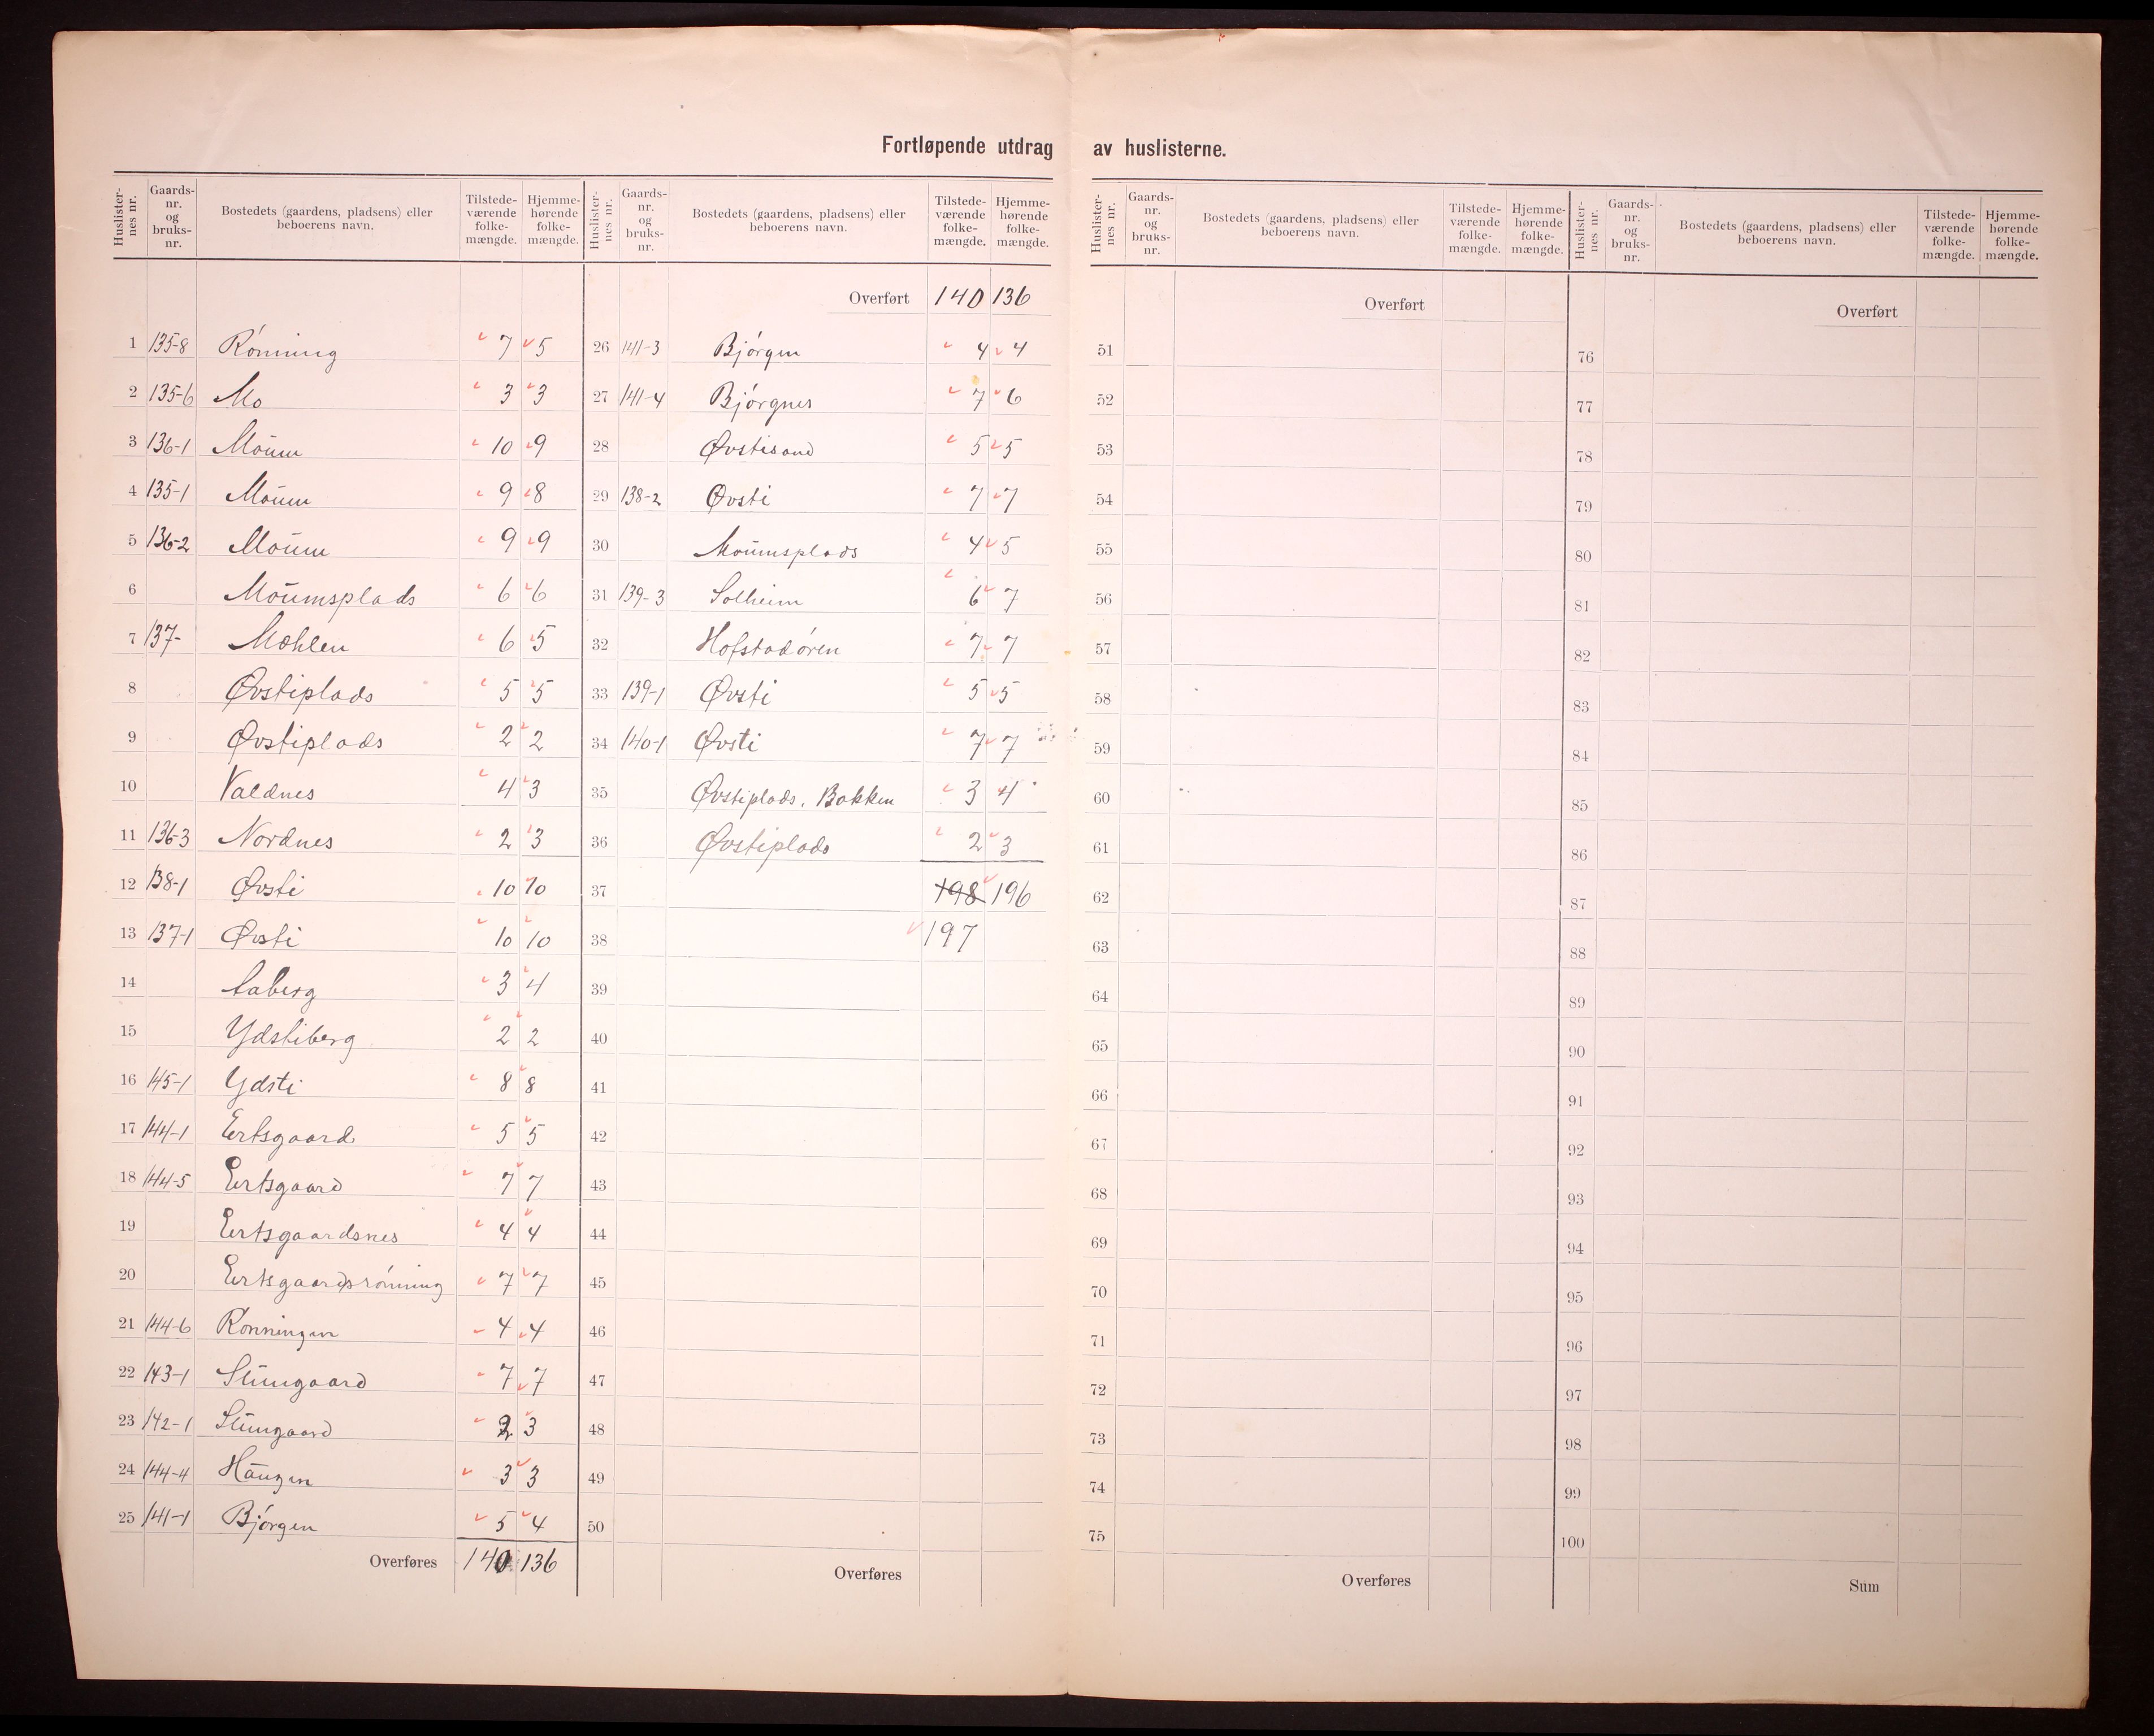 Fortløpende utdrag av huslisterne.
Huslisternes nr. Gaardsnr. og bruksnr. Bostedets (gaardens, pladsens) eller beboerens navn. Tilstedeværende folkemængde. Hjemmehørende folkemængde.
1 135-8 Rönning 7 5
2 135-6 Mo 3 3
3 136-1 Moum 10 9
4 135-1 Moum 9 8
5 136-2 Moum 9 9
6 Moumsplads 6 6
7 137- Mæhlen 6 5
8 Øvstiplads 5 5
9 Øvstiplads 2 2
10 Valdnes 4 3
11 136-3 Nordnes 2 3
12 138-1 Øvsti 10 10
13 137-1 Øvsti 10 10
14 Aaberg 3 4
15 Ydstiberg 2 2
16 145-1 Ydsti 8 8
17 144-1 Ertsgaard 5 5
18 144-5 Ertsgaard 7 7
19 Ertsgaardsnes 4 4
20 Ertsgaardsrönning 7 7
21 144-6 Rönningen 4 4
22 143-1 Stuugaard 7 7
23 142-1 Stuugaard 2 3
24 144-4 Haugen 3 3
25 141-1 Björgen 5 4
Overføres 140 136
Huslisternes nr. Gaardsnr. og bruksnr. Bostedets (gaardens, pladsens) eller beboerens navn. Tilstedeværende folkemængde. Hjemmehørende folkemængde.
Overført 140 136
26 141-3 Björgen 4 4
27 141-4 Björgnes 7 6
28 Øvstisand 5 5
29 138-2 Øvsti 7 7
30 Moumsplads 4 5
31 139-3 Solheim 6 7
32 Hofstadören 7 7
33 139-1 Øvsti 5 5
34 140-1 Øvsti 7 7
35 Øvstiplads. Bakken 3 4
36 Øvstiplads 2 3
37 198 196
38 197
39
40
41
42
43
44
45
46
47
48
49
50
Overføres
Huslisternes nr. Gaardsnr. og bruksnr. Bostedets (gaardens, pladsens) eller beboerens navn. Tilstedeværende folkemængde. Hjemmehørende folkemængde.
Overført
51
52
53
54
55
56
57
58
59
60
61
62
63
64
65
66
67
68
69
70
71
72
73
74
75
Overføres
Huslisternes nr. Gaardsnr. og bruksnr. Bostedets (gaardens, pladsens) eller beboerens navn. Tilstedeværende folkemængde. Hjemmehørende folkemængde.
Overført
76
77
78
79
80
81
82
83
84
85
86
87
88
89
90
91
92
93
94
95
96
97
98
99
100
Sum